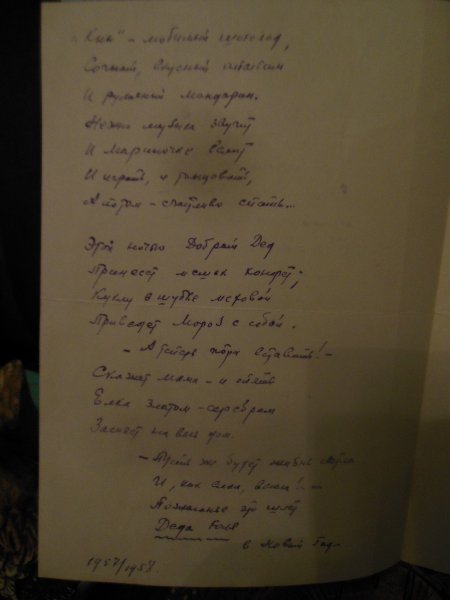 "Кыш" - любимый шоколад,
Сочный, вкусный апельсин
И румяный мандарин.
Нежно музыка звучит
И Мариночке велит
И играть, и танцовать,
А потом - счастливо спать...
Этой ночью Добрый Дед
Принесет мешок конфет;
Куклу в шубке меховой
Приведет Мороз с собой.
- А теперь пора вставать! -
Скажет мама - и опять
Елка златом-серебром
Засияет на весь дом.
- Пусть же будет жизнь
И, как елка, -
Пожеланье это шлет
Деда Боря
в Новый Год.
1957/1958.